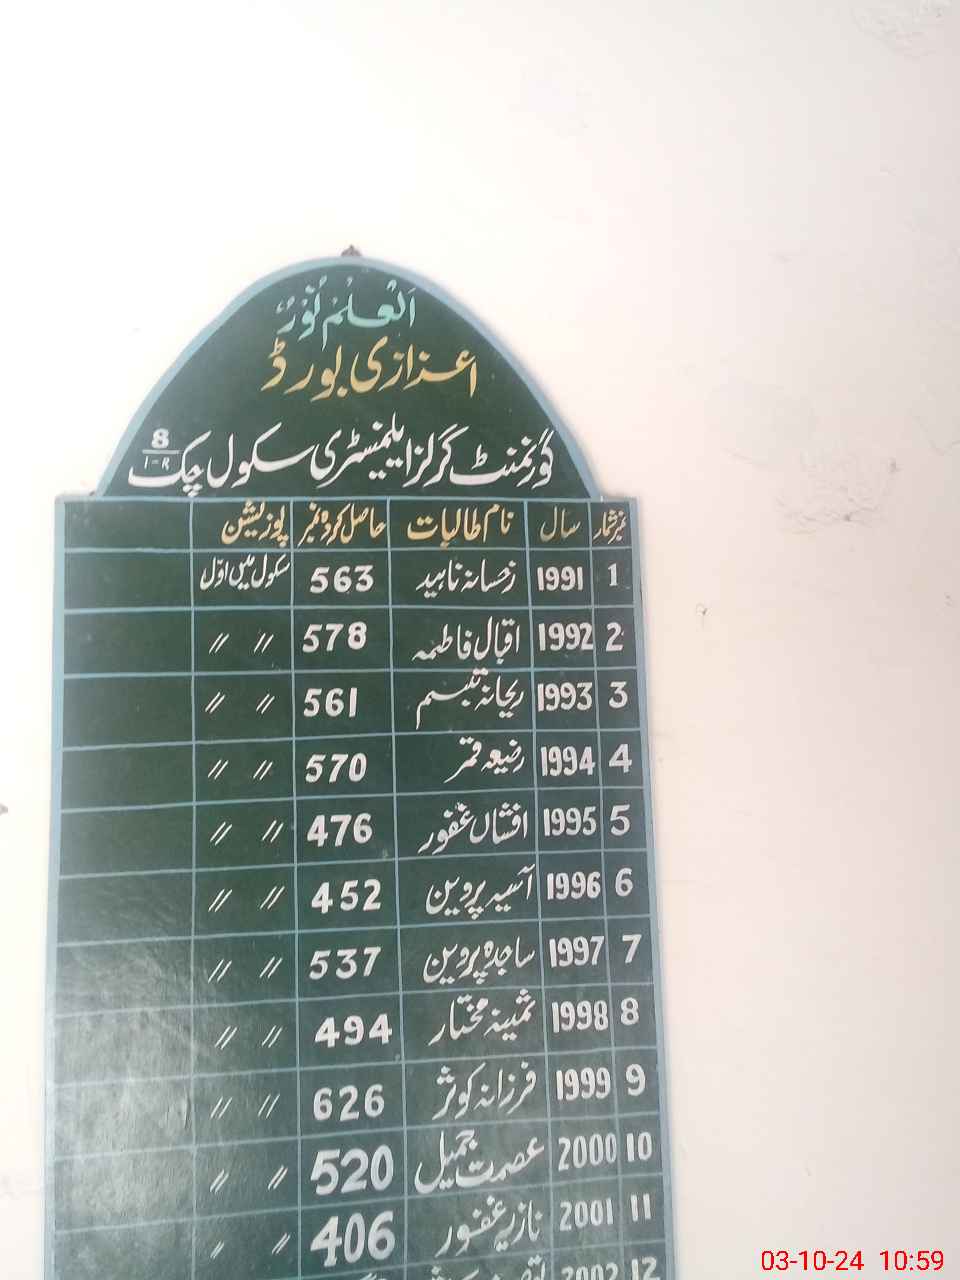 اَلْعلمُ نُوْرٌ
اعزازی بورڈ
گورنمنٹ گرلز ایلیمنٹری سکول چک 8/1-R
نمبرشمار سال نام طالبات حاصل کردہ نمبر پوزیشن
1 1991 رخسانہ ناہید 563 سکول میں اوّل
2 1992 اقبال فاطمہ 578 〃 〃
3 1993 ریحانہ تبسم 561 〃 〃
4 1994 رضیعہ قمر 570 〃 〃
5 1995 افشاں غفور 476 〃 〃
6 1996 آسیہ پروین 452 〃 〃
7 1997 ساجدہ پروین 537 〃 〃
8 1998 ثمینہ مختار 494 〃 〃
9 1999 فرزانہ کوثر 626 〃 〃
10 2000 عصمت جمیل 520 〃 〃
11 2001 نازیہ غفور 406 〃 〃
12 2002
03-10-24 10:59